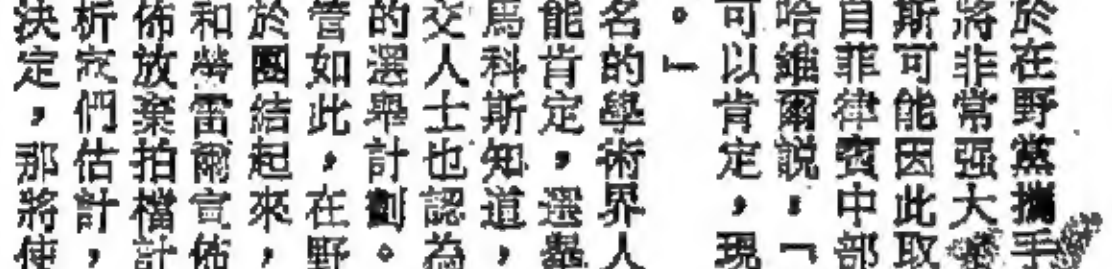 於在野黨攜手
將非常强大
斯可能因此取
自菲律賓中部
哈維爾説：「
可以肯定，現
。」
名的學術界人
能肯定，選舉
馬科斯知道，
交人士也認為
的選舉計劃。
管如此，在野
於團結起來，
和勞雷爾宣佈
佈放棄拍檔計
析家們估計，
決定，那將使